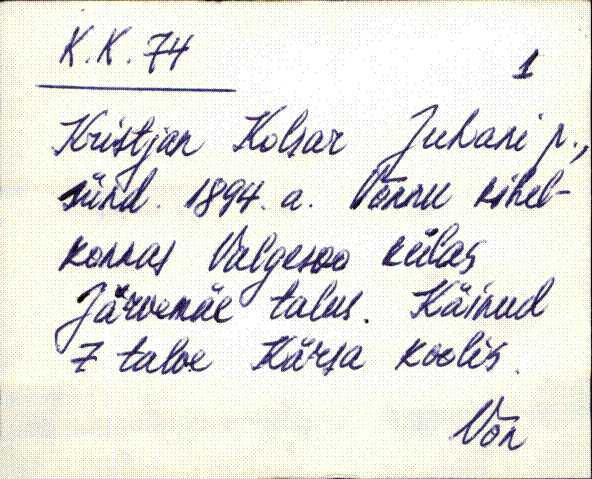 K.K. 74
1
Kristjan Kolsar Juhani p.,
sünd. 1894. a. Võnnu kihel-
konnas Valgesoo külas
Järvemäe talus. Käinud
7 talve Kärsa koolis.
Võn